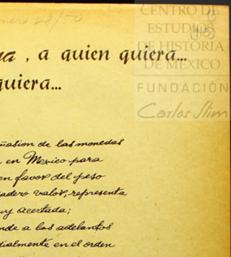 CENTRO DE
ESTUDIOS
DE HISTORIA
DE MEXICO
FUNDACIÓN
Carlos Slim
, a quien quiera...
quiera...
de las monedas
en Mexico para
en favor del peso
valor, representa
uy acertada;
nde a los adelantos
dialmente en el orden